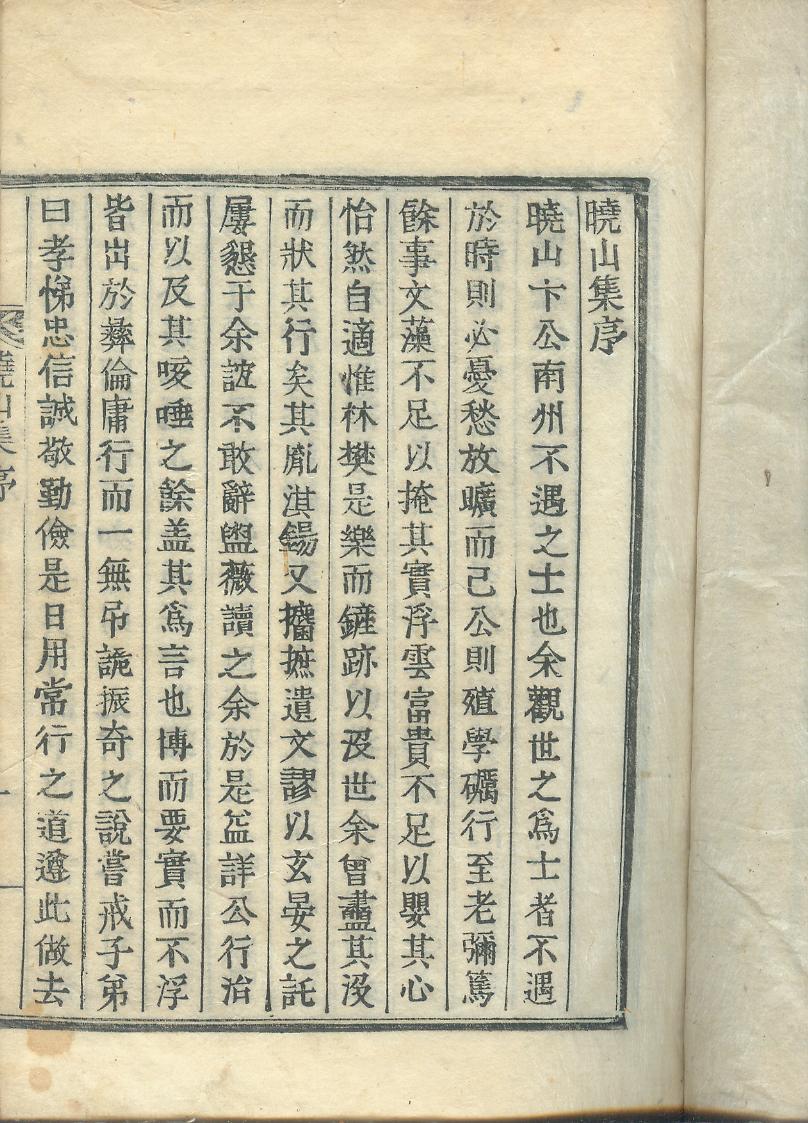 曉山集序
曉山卞公南州不遇之士也余觀世之爲士者不遇
於時則必憂愁放曠而已公則殖學礪行至老彌篤
餘事文藻不足以掩其實浮雲富貴不足以嬰其心
怡然自適惟林樊是樂而鏟跡以沒世余曾盡其沒
而狀其行矣其胤淇錫又攟摭遺文謬以玄晏之託
屢懇于余誼不敢辭盥薇讀之余於是益詳公行治
而以及其咳唾之餘盖其爲言也博而要實而不浮
皆出於彝倫庸行而一無吊詭振奇之說嘗戒子弟
曰孝悌忠信誠敬勤儉是日用常行之道遵此做去
曉山集序
一